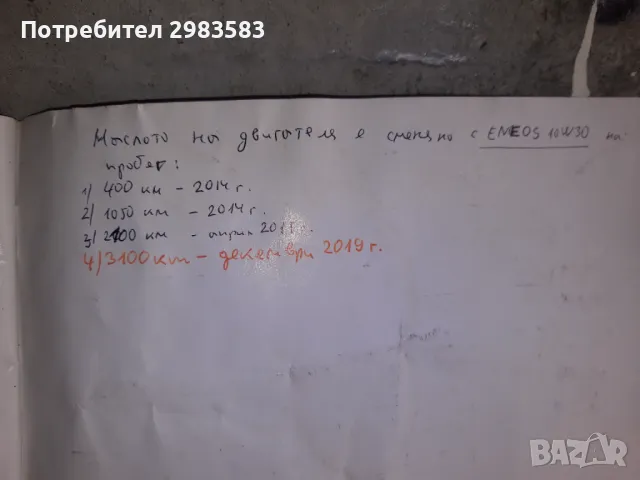 Потребител 2983583
Маслото на двигателя е сменяно с ENEOS 10W30 на
пробег:
1/ 400 км - 2014 г.
2/ 1050 км - 2014 г.
3/ 2100 км - април
4/ 3100 км - декември 2019 г.
BAZAR